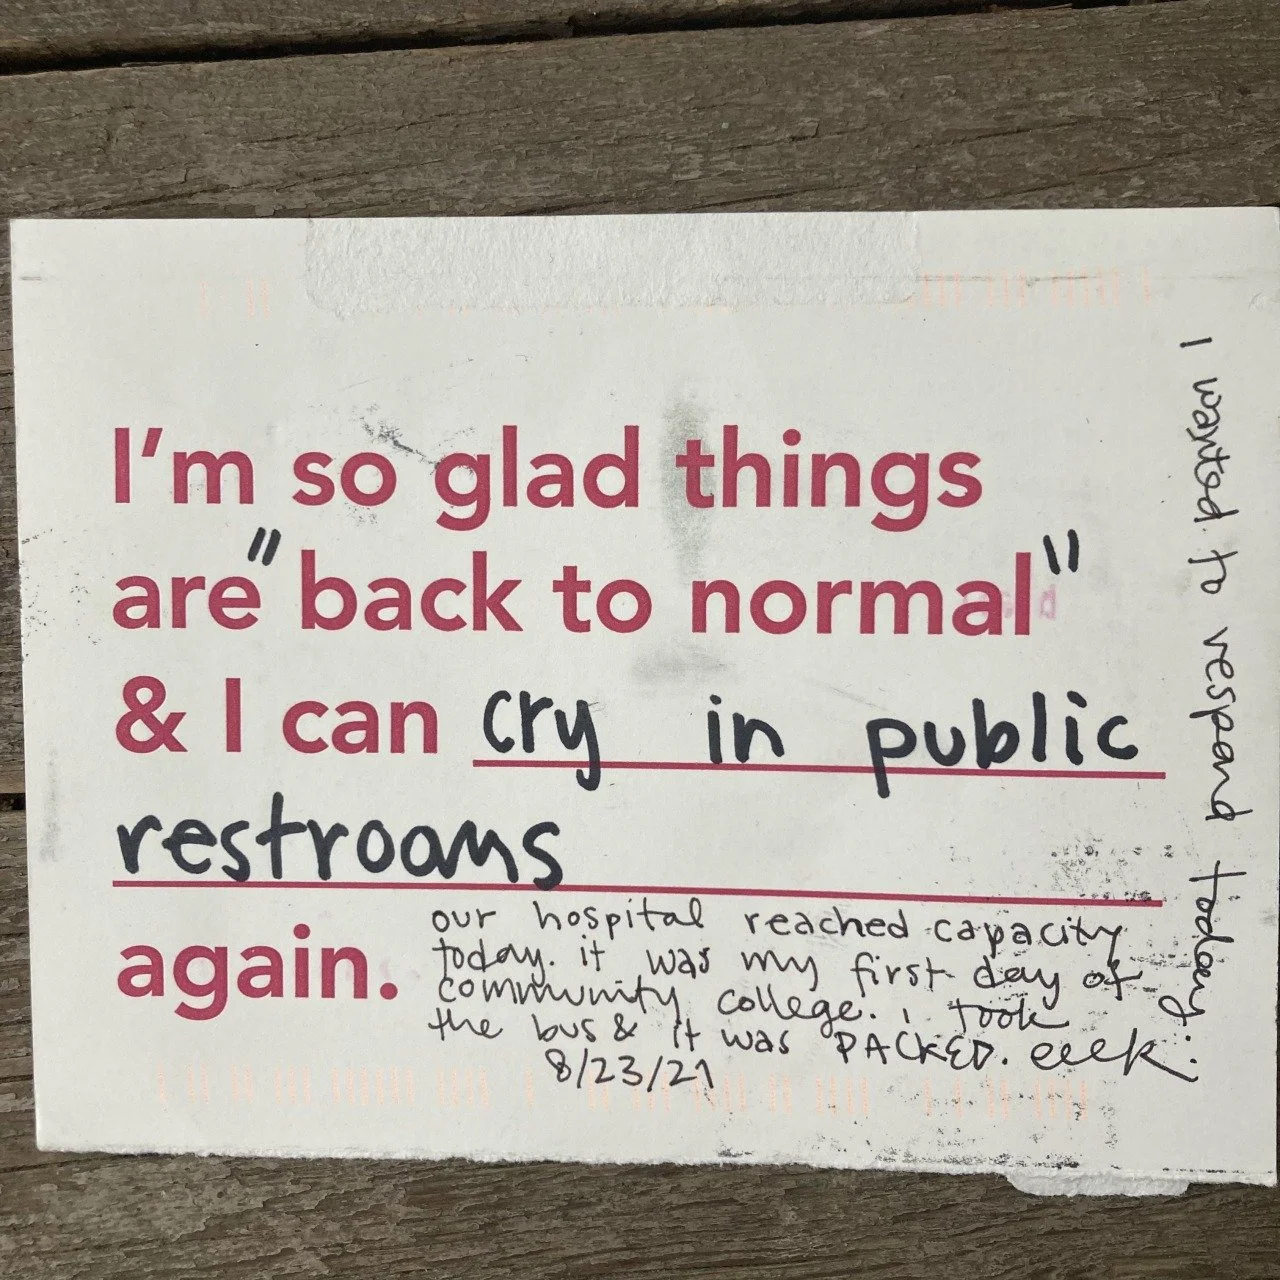 I'm so glad things
are "back to normal"
& I can cry in public
restrooms
again.
our hospital reached capacity
today. it was my first day of
community college. i took
the bus & it was PACKED. eeek.
8/23/21
I wanted to respond today: